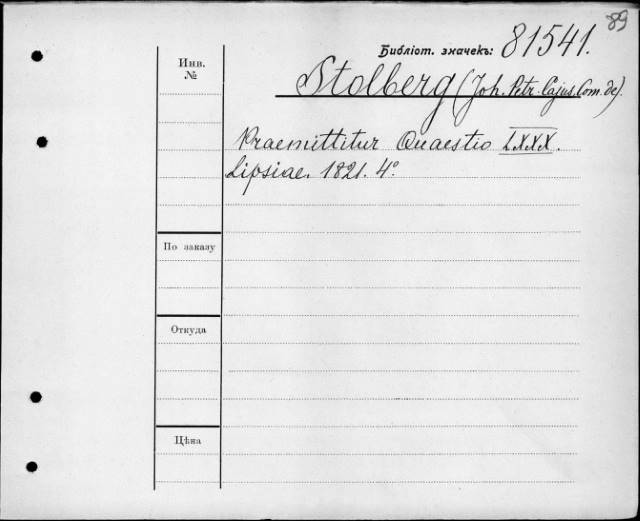 89
Библіот. значекъ: 81541.
Инв. №
Stolberg (Joh. Petr. Cajus, Com. de).
Praemittitur Quaestio LXXX.
Lipsiae. 1821. 4°.
По заказу
Откуда
Цѣна